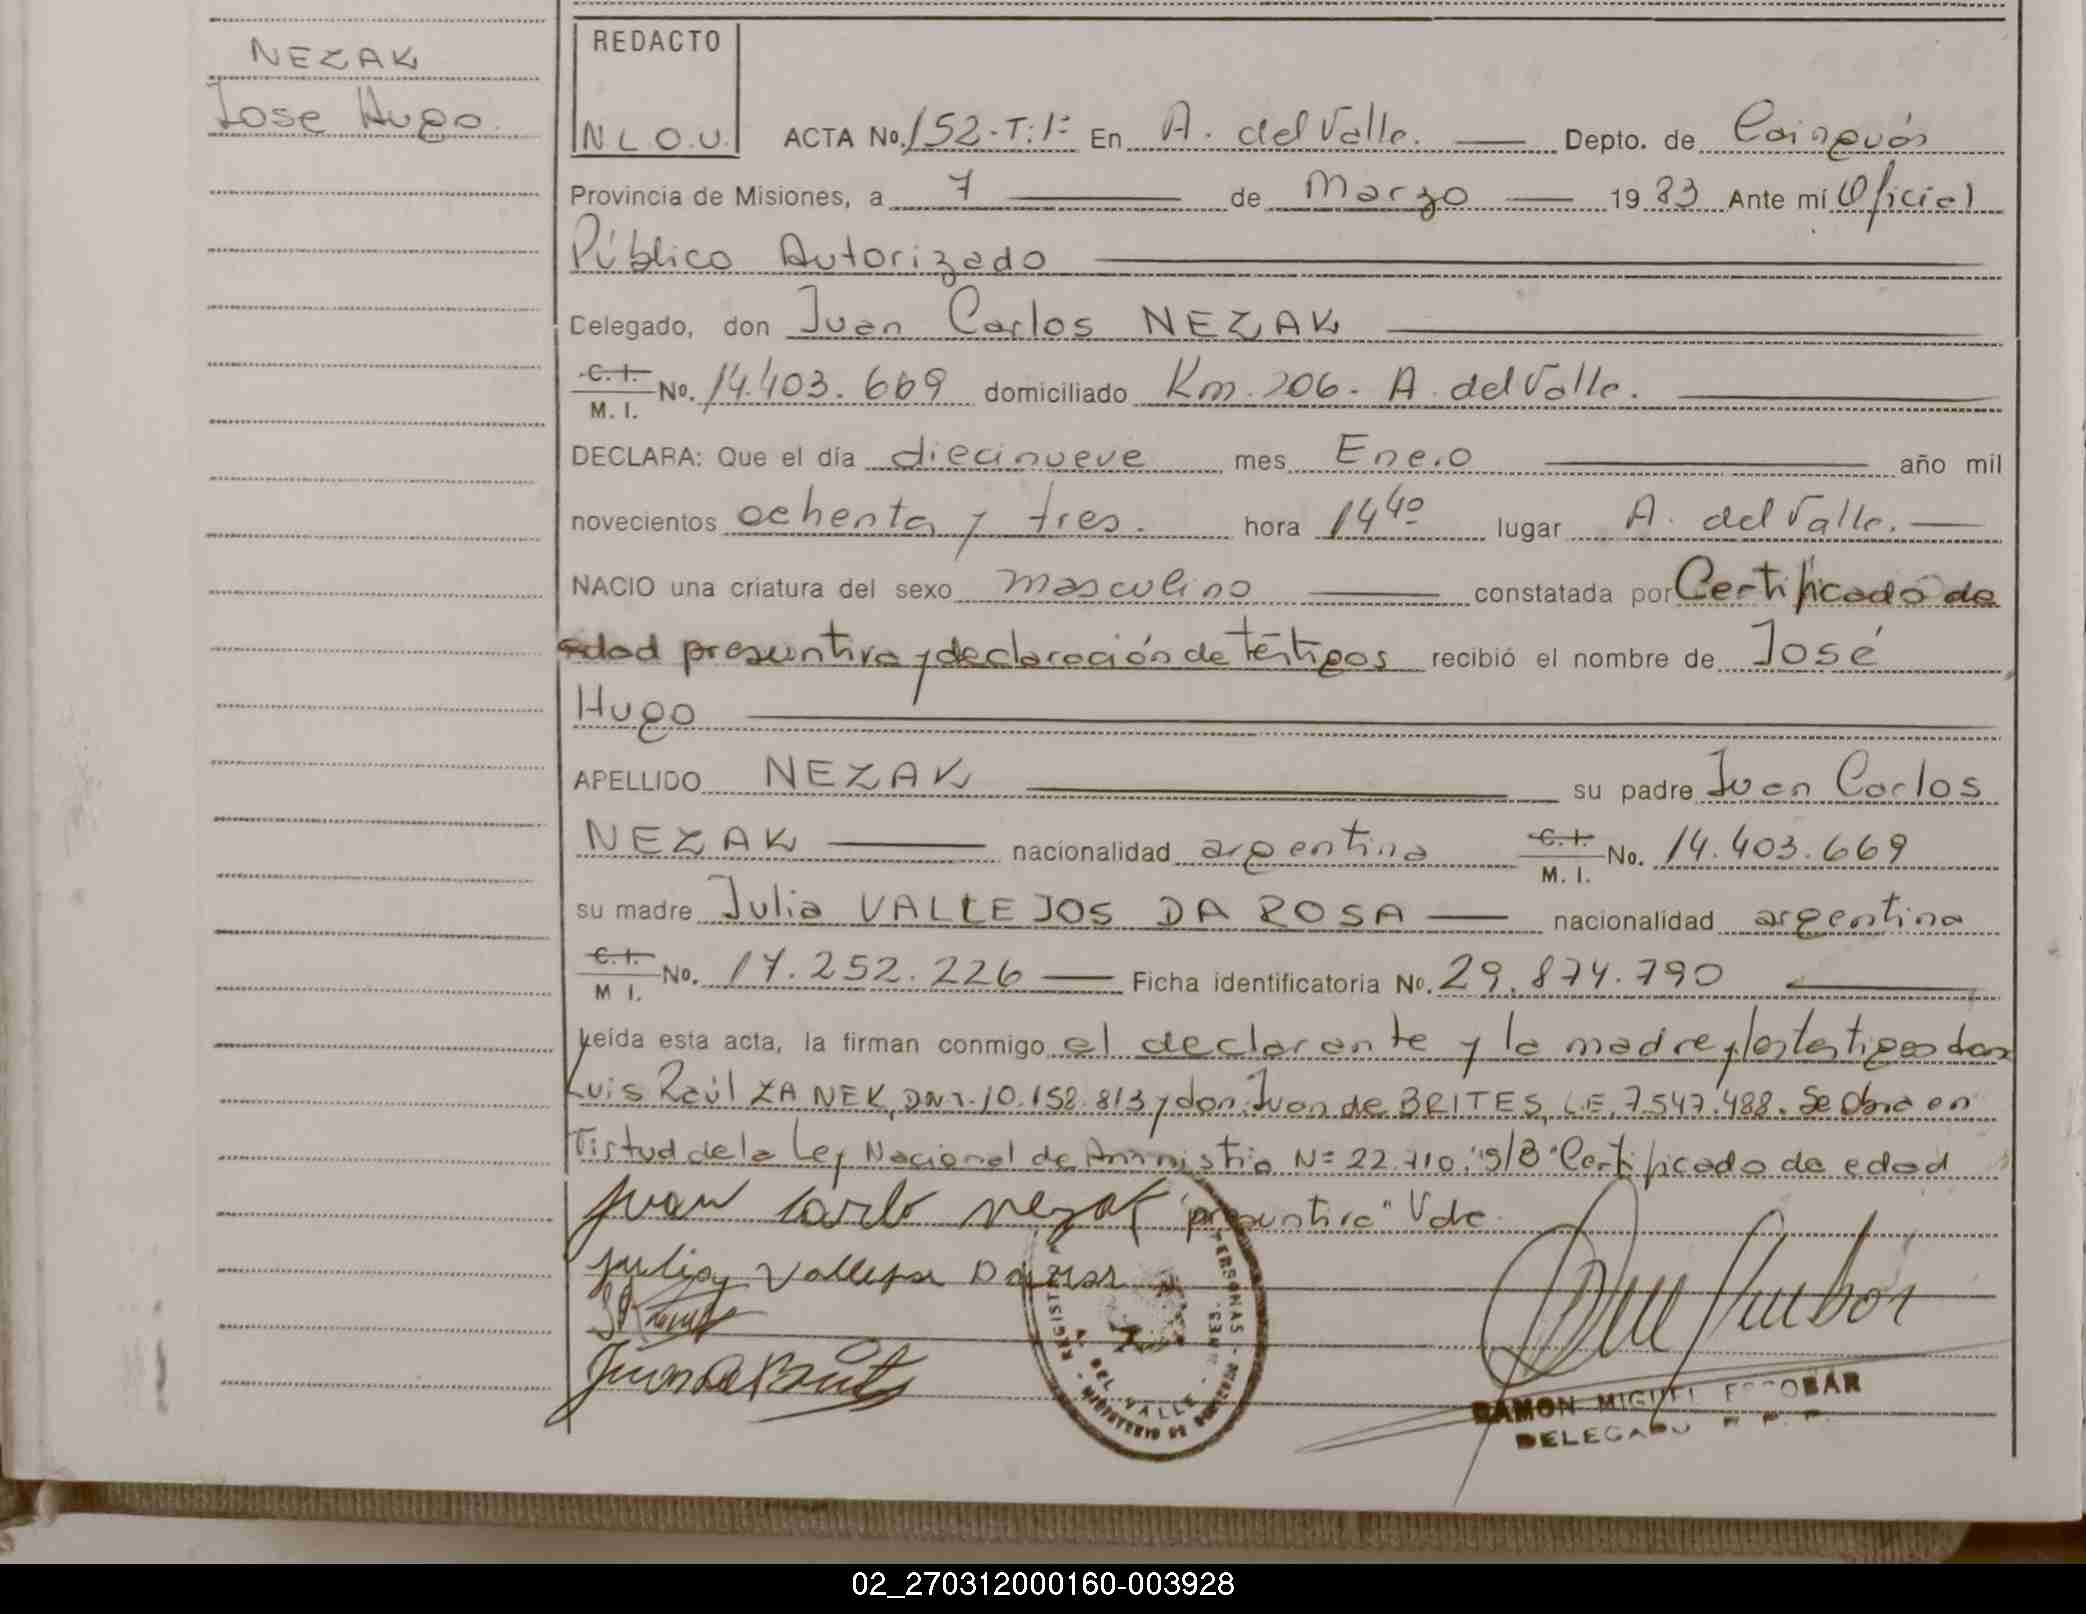 NEZAK
Jose Hugo.
REDACTO
N L O.U.
ACTA No. 152-T:1º En A. del Valle. Depto. de Cainguás
Provincia de Misiones, a 7 de Marzo 1983 Ante mi Oficial
Público Autorizado
Celegado, don Juan Carlos NEZAK
C.I. M. I. No. 14.403.669 domiciliado Km. 206- A. del Valle.
DECLARA: Que el día diecinueve mes Enero año mil
novecientos ochenta y tres. hora 14 40 lugar A. del Valle.
NACIO una criatura del sexo masculino constatada por Certificado de
edad presuntiva y declaración de testigos recibió el nombre de José
Hugo
APELLIDO NEZAK su padre Juan Carlos
NEZAK nacionalidad argentina C.I. M. I. No. 14.403.669
su madre Julia VALLEJOS DA ROSA nacionalidad argentina
C.I. M I. No. 17.252.226 Ficha identificatoria No. 29.874.790
Leída esta acta, la firman conmigo el declarante y la madre y los testigos don
Luis Raúl ZANEK, DNI. 10.158.813 y don Juan de BRITES, L.E. 7.547.488. Se Obra en
Virtud de la Ley Nacional de Amnistia Nº 22.710. s/B "Certificado de edad
presuntiva" Vale.
Juan Carlo Nezak
Julia Vallejos
Juan de Brites
PERSONAS
VALLE
RAMON MIGUEL ESCOBAR
DELEGADO
02_270312000160-003928